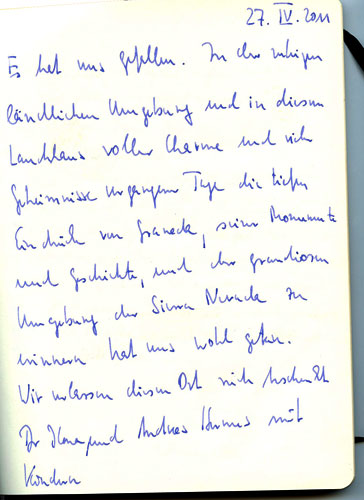 27. IV. 2011
Es hat uns gefallen. In der ruhigen
ländlichen Umgebung und in diesem
Landhaus voller Charme und vieler
Geheimnisse vergangener Tage die tiefen
Eindrücke von Granada, seiner Monumente
und Geschichte, und der grandiosen
Umgebung der Sierra Nevada zu
erinnern hat uns wohl getan.
Wir verlassen diesen Ort reich beschenkt
Dr. und Andreas mit
Kindern